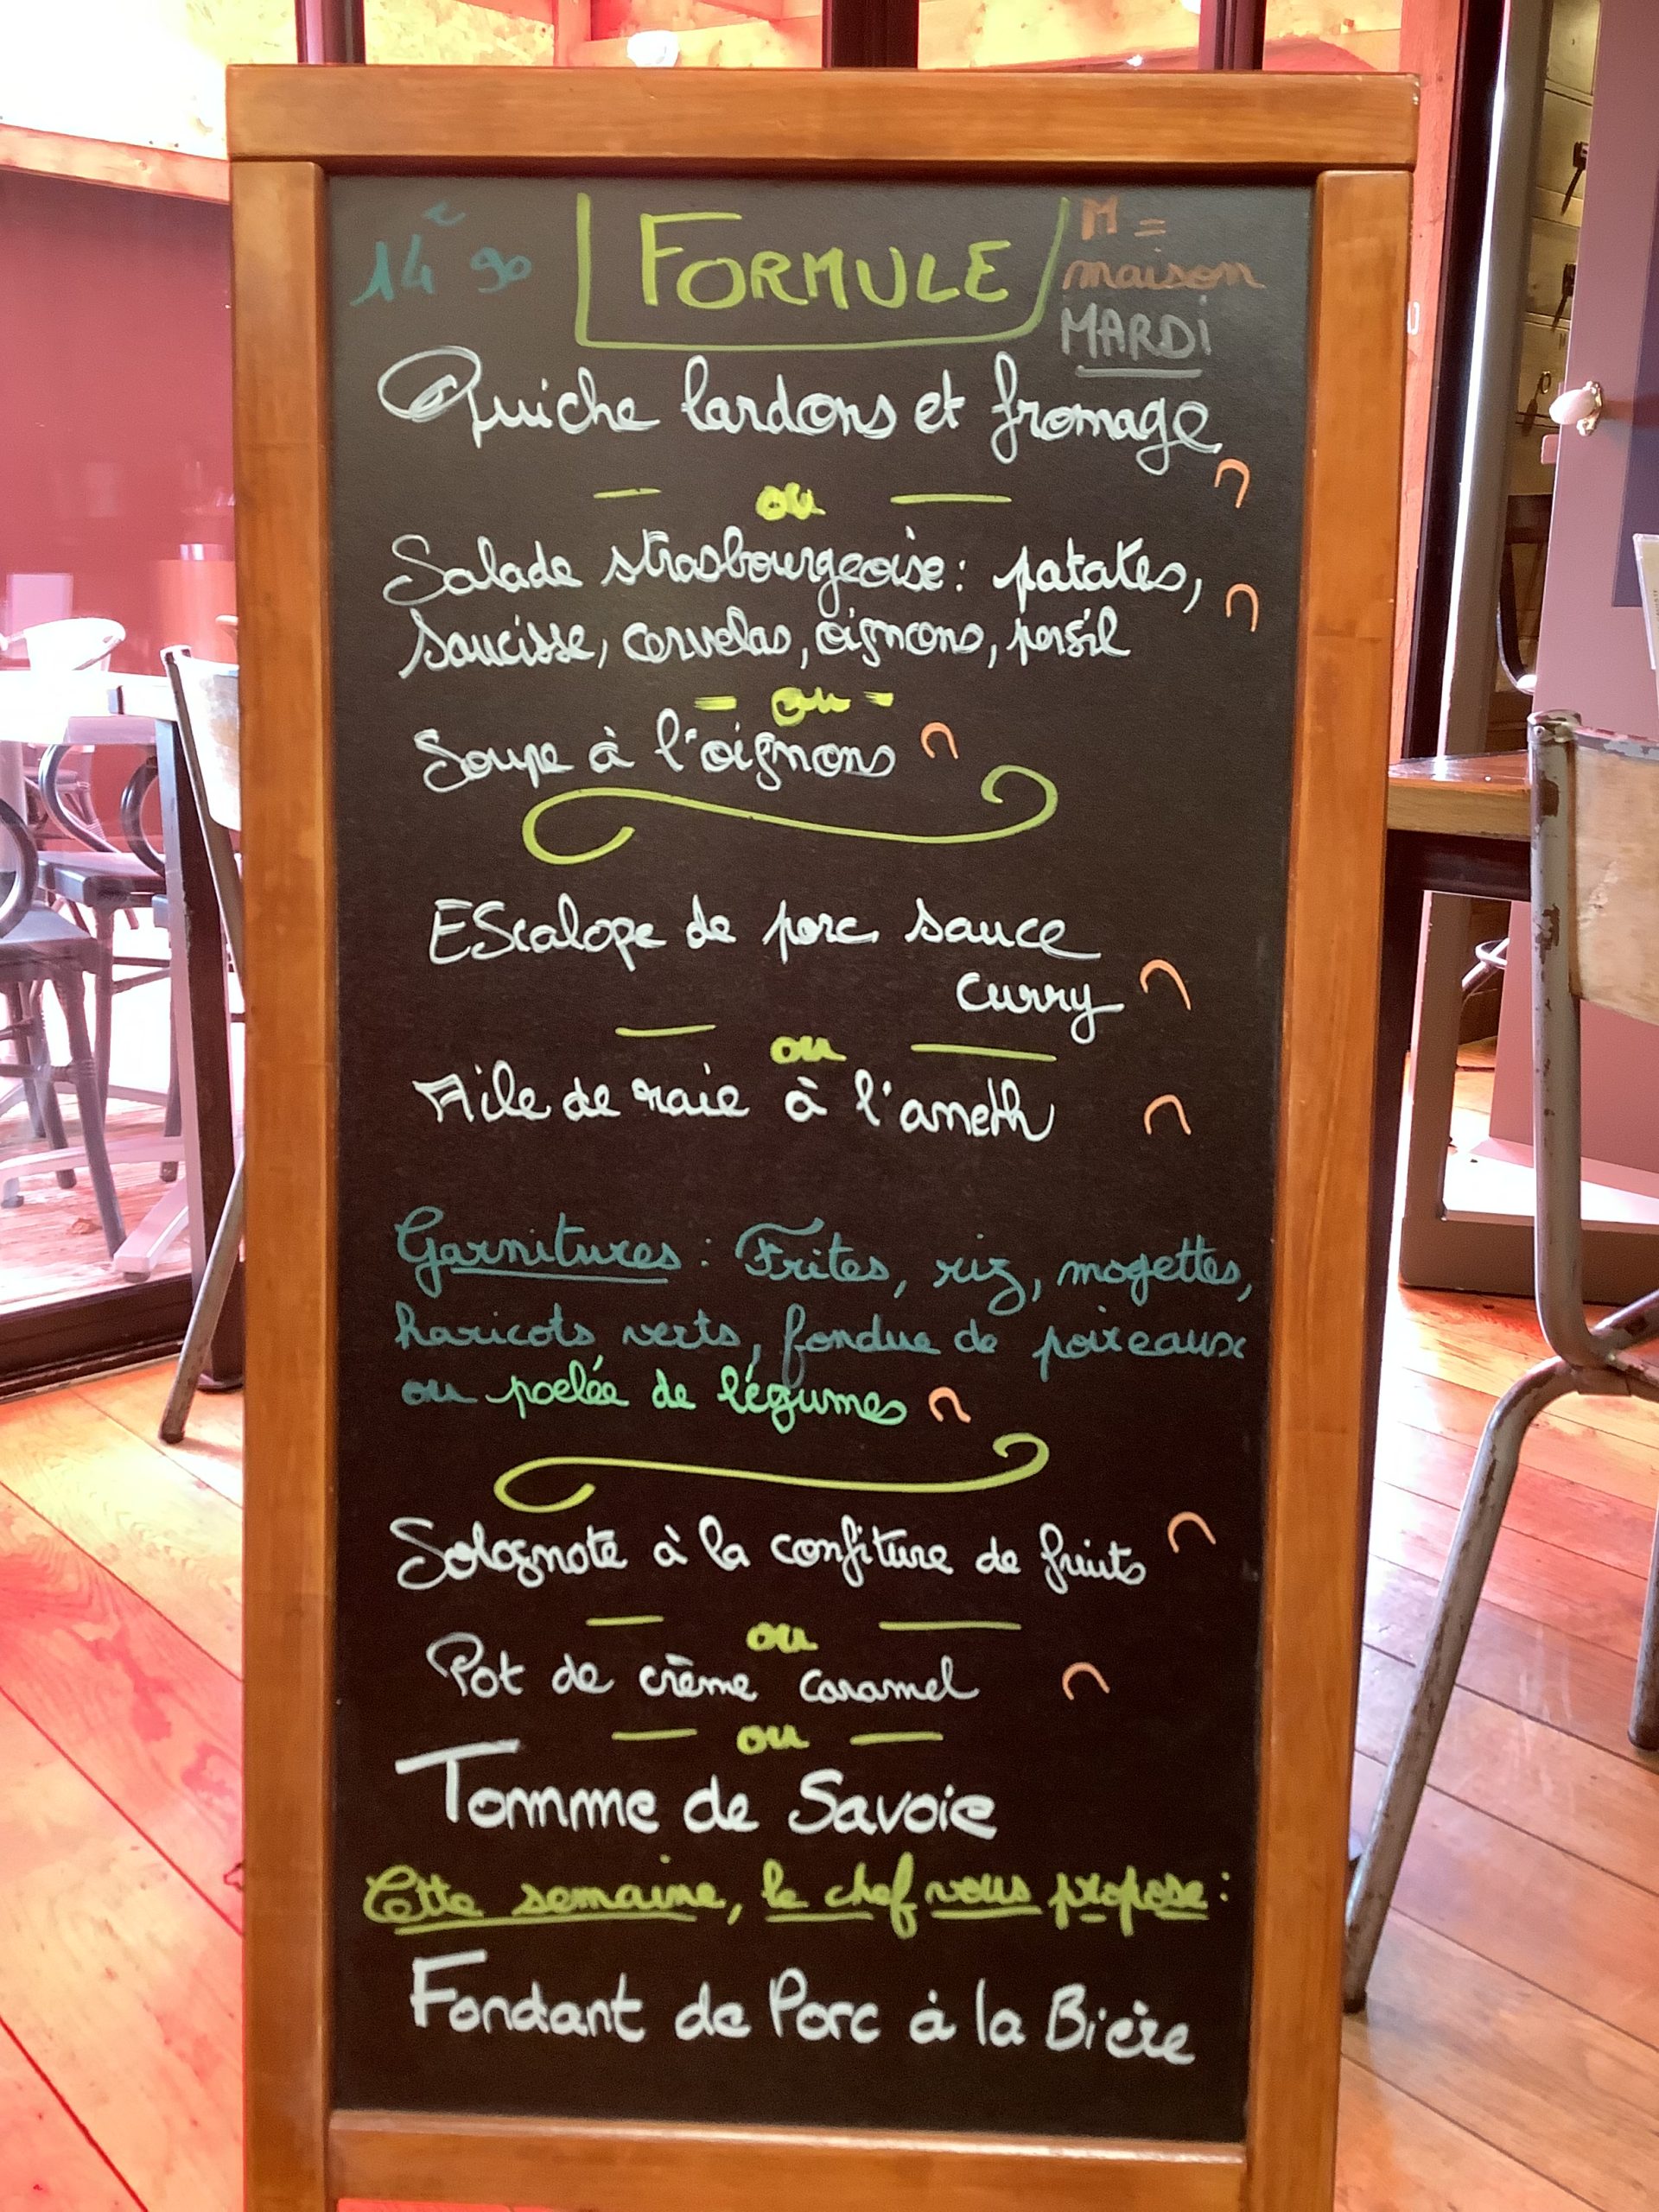 14€90 FORMULE M =
maison
MARDI
Quiche lardons et fromage
ou
Salade strasbourgeoise : patates,
saucisse, cervelas, oignons, persil
= ou =
Soupe à l'oignons
EScalope de porc sauce
curry
ou
Aile de raie à l'aneth
Garnitures : Frites, riz, mogettes,
haricots verts, fondue de poireaux
ou poelée de légumes
Solognote à la confiture de fruits
ou
Pot de crème caramel
ou
Tomme de Savoie
Cette semaine, le chef vous propose :
Fondant de Porc à la Bière